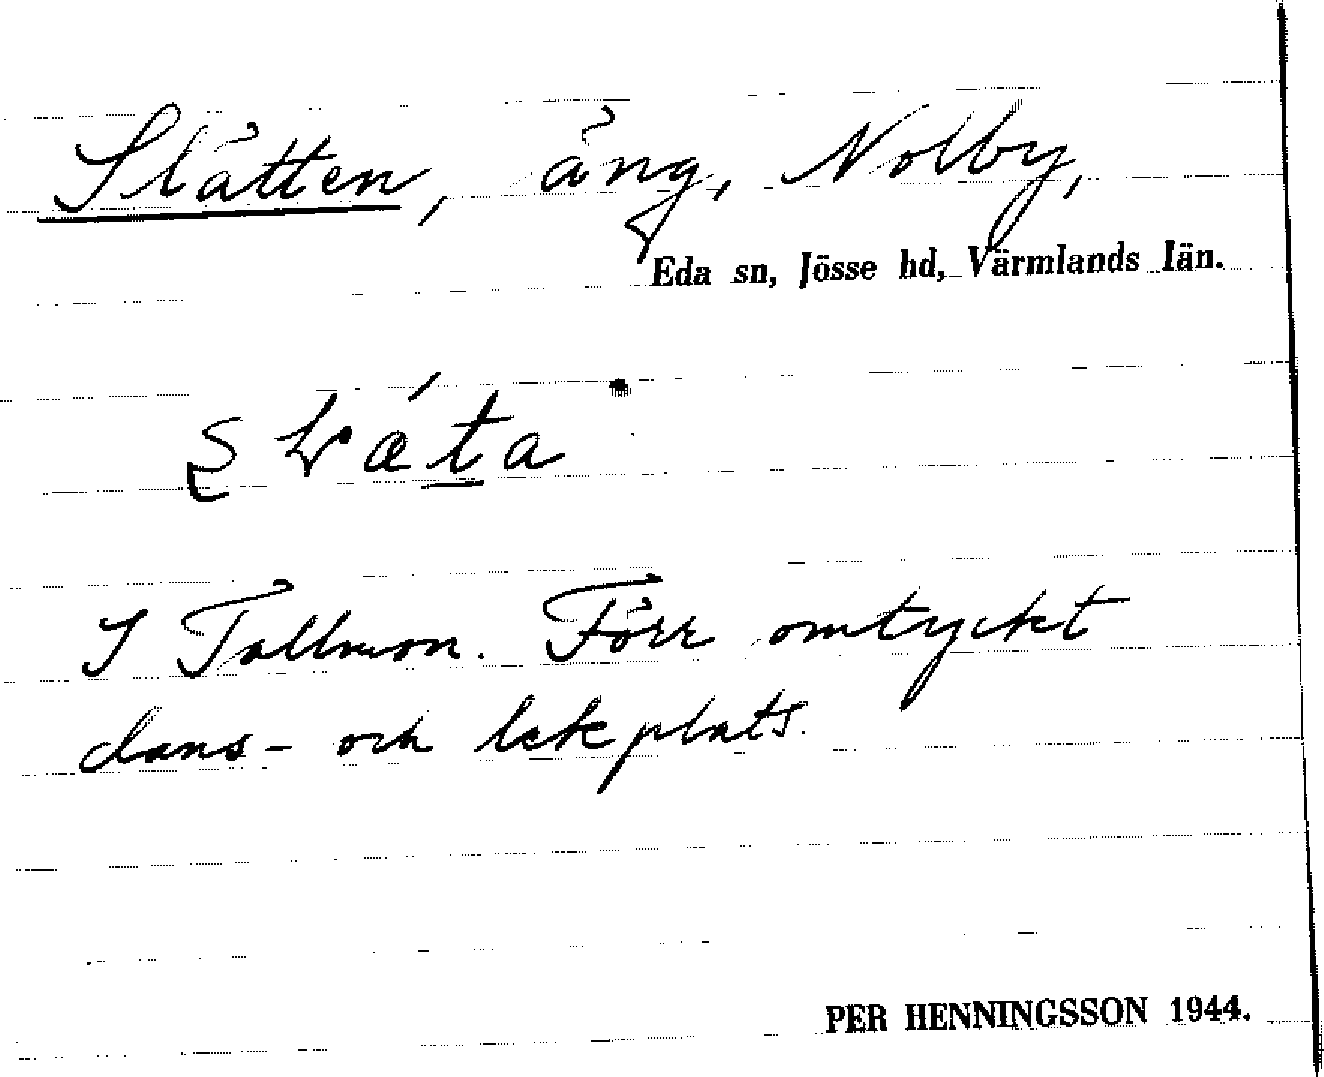 Slätten, äng, Nolby,
Eda sn, Jösse hd, Värmlands län.
I Tallmon. Förr omtyckt
dans- och lekplats.
PER HENNINGSSON 1944.